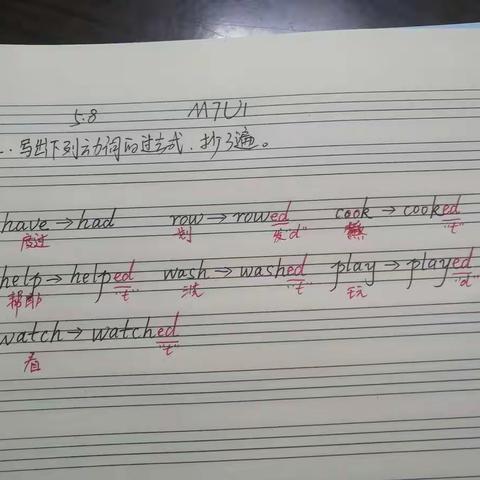 5.8 M7U1
1. 写出下列动词的过去式,抄3遍。
have → had row → rowed cook → cooked
度过 划 发"d" "t"
help → helped wash → washed play → played
帮助 "t" 洗 "t" 玩 "d"
watch → watched
看 "t"